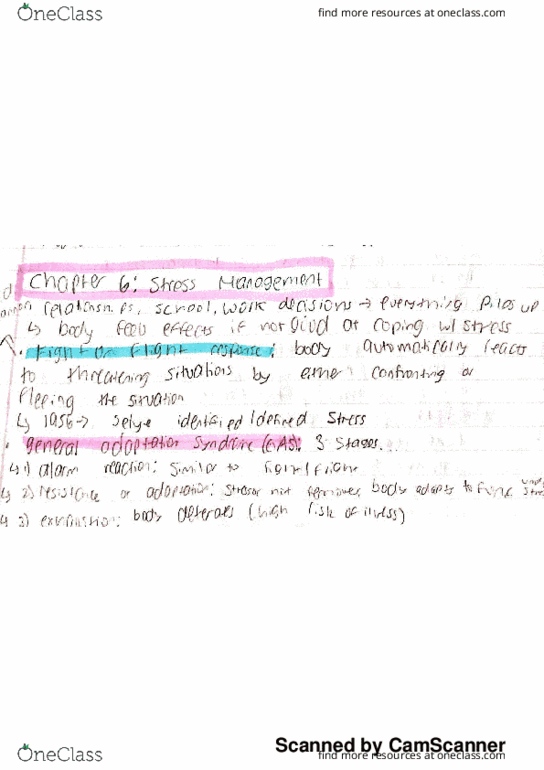 OneClass
find more resources at oneclass.com
Chapter 6: Stress Management
relationships, school, work decisions → everything piles up
↳ body feels effects if not good at coping w/ stress
• Fight or Flight response: body automatically reacts
to threatening situations by either confronting or
fleeing the situation
↳ 1956 → Selye identified/defined stress
• general adaptation syndrome (GAS): 3 stages.
↳ 1) alarm reaction: similar to fight/flight
↳ 2) resistence or adaptation: stressor not removed, body adapts to func under
↳ 3) exhaustion: body (high risk of illness)
Scanned by CamScanner
OneClass
find more resources at oneclass.com